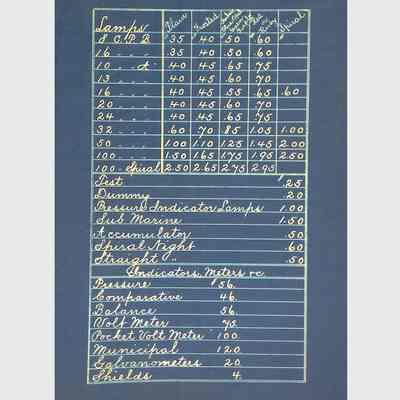 Lamps Plain Frosted Ruby Spiral
8 C.P. B .35 .40 .50 .60
16 " " " .35 .40 .50 .60
10 " " A .40 .45 .65 .75
13 " " " .40 .45 .60 .70
16 " " " .40 .45 .55 .65 .60
20 " " " .40 .45 .60 .70
24 " " " .40 .45 .65 .75
32 " " " .60 .70 .85 1.05 1.00
50 " " " 1.00 1.10 1.25 1.45 2.00
100 " " " 1.50 1.65 1.75 1.95 2.50
100 - Spiral 2.50 2.65 2.75 2.95
Test .25
Dummy .20
Pressure Indicator Lamps 1.00
Sub Marine 1.50
Accumulator .50
Spiral Night .60
Straight " .50
Indicators, Meters &c.
Pressure $56.
Comparative 46.
Balance 56.
Volt Meter 75.
Pocket Volt Meter 100.
Municipal 120.
Galvanometers 20.
Shields 4.